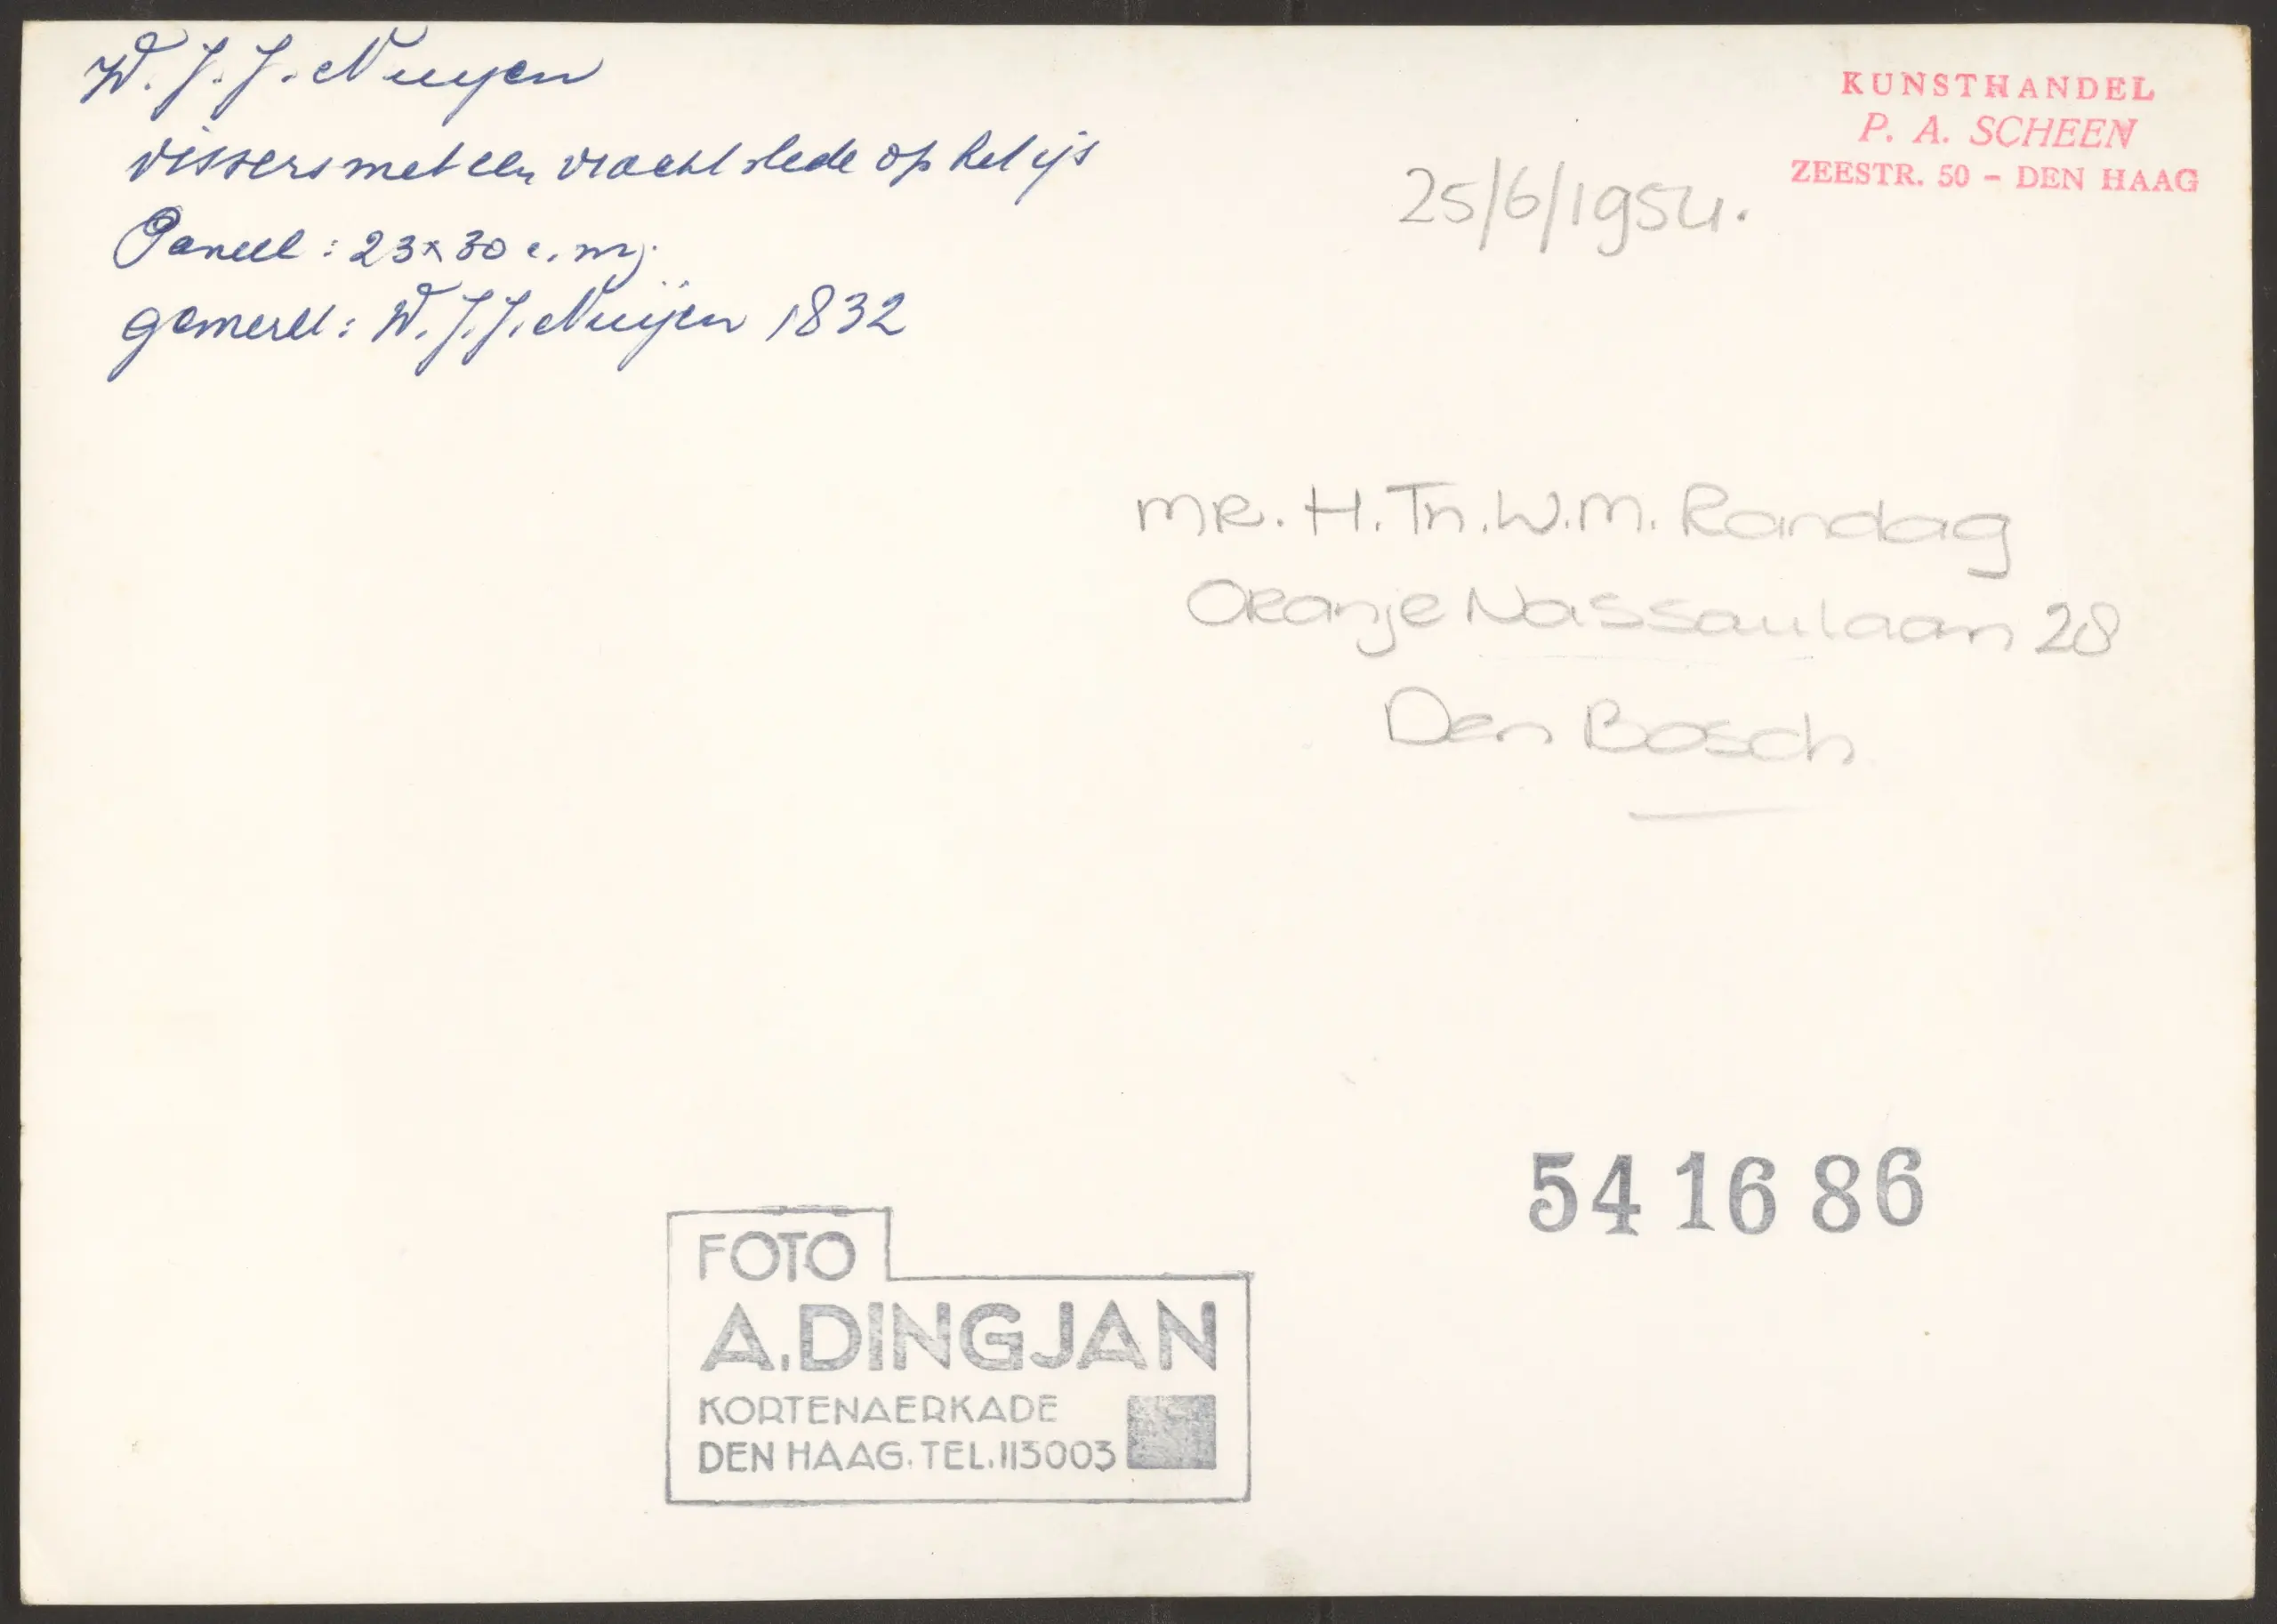 W. J. J. Nuyen
vissers met een vracht slede op het ijs
Paneel : 23 x 30 c. m.
gemerkt : W. J. J. Nuijen 1832
KUNSTHANDEL
P. A. SCHEEN
ZEESTR. 50 – DEN HAAG
25/6/1954.
MR. H. Th. W. M. Randag
Oranje Nassaulaan 28
Den Bosch
54 16 86
FOTO
A. DINGJAN
KORTENAERKADE
DEN HAAG. TEL. 113003